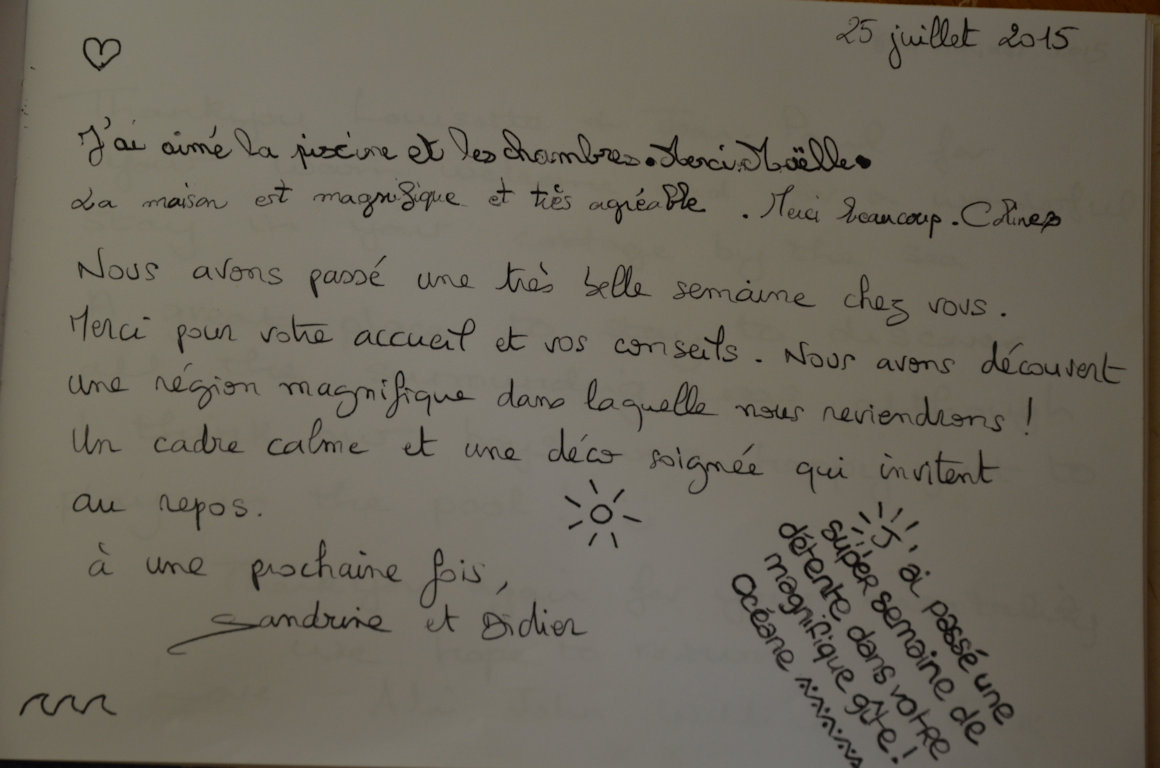 25 juillet 2015
J'ai aimé la piscine et les chambres. Merci. Maëlle.
La maison est magnifique et très agréable. Merci beaucoup. Coline
Nous avons passé une très belle semaine chez vous.
Merci pour votre accueil et vos conseils. Nous avons découvert
une région magnifique dans laquelle nous reviendrons !
Un cadre calme et une déco soignée qui invitent
au repos.
à une prochaine fois,
Sandrine et Didier
J'ai passé une
super semaine de
détente dans votre
magnifique gîte !
Océane